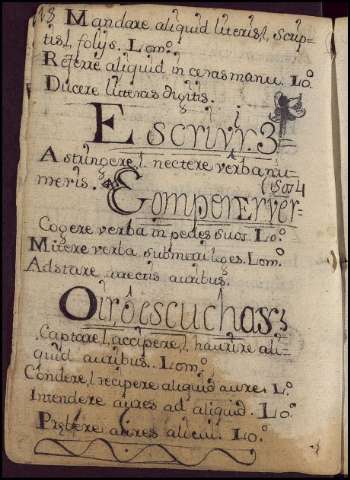 13 Mandare aliquid literis, l, scrip-
tis, l, folijs. Lomº.
Referre aliquid in ceras manu. Lº
Ducere literas digitis.
Escrivir. 3=
Astringere, l, nectere verba nu-
meris.
Componer ver-
(sos 4
Cogere verba in pedes suos. Lº.
Mitere verba
Lomº.
Adstare arrectis auribus.
Oir ô escuchar. 3
Captare, l, accipere, l, haurire ali-
quid auribus. Lomº
Condere, l, recipere aliquid aure. Lº.
Intendere aures ad aliquid. Lº.
Prebere aures alicui. Lº.